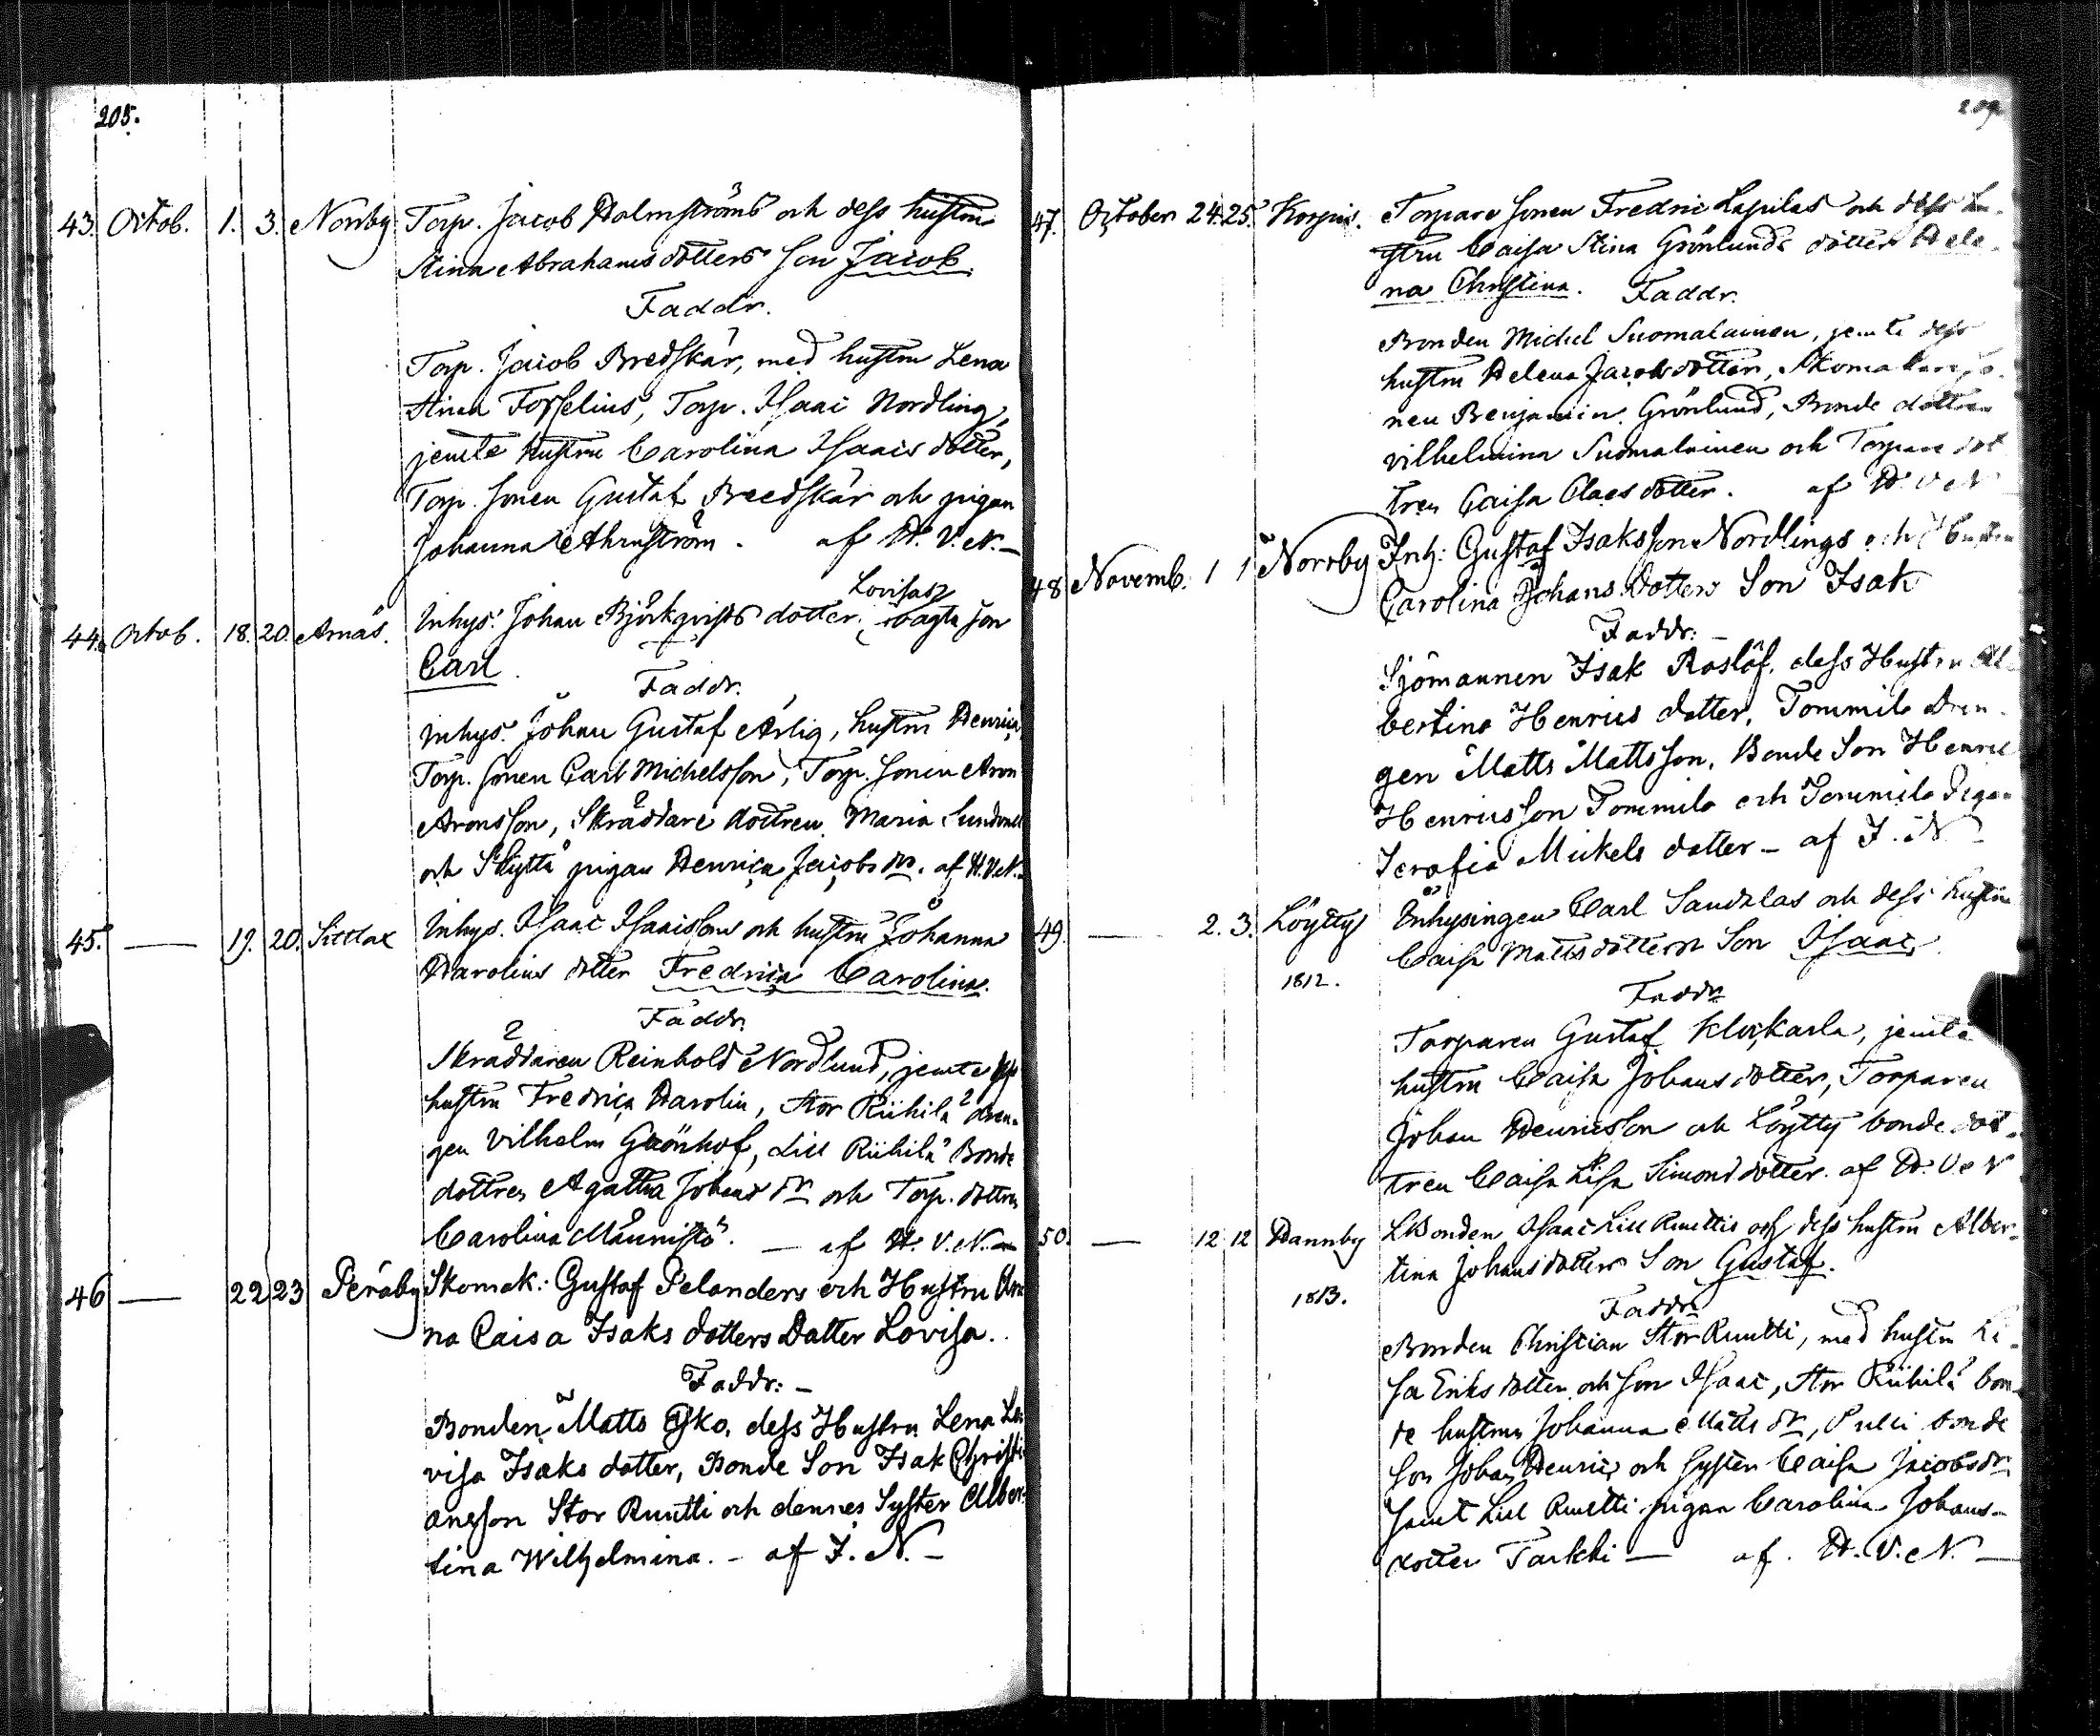 205.
43. Octob. 1. 3. Norrby Torp. Jacob Holmströms och dess hustru
Stina Abrahams dotters Son Jacob.
Faddr.
Torp. Jacob Bredskär, med hustru Lena
Stina Forselius, Torp. Isaac Nordling,
jemte hustru Carolina Isaacs dotter,
Torp. Sonen Gustaf Breedskär och pigan
Johanna Ahrnström. af H. V. N. –
44. Octob. 18. 20. Arnäs. Inhys. Johan Björkqvists dotter Lovisas oägta Son
Carl.
Faddr.
Inhys. Johan Gustaf Ärlig, hustru Henrica
Torp. Sonen Carl Michelsson, Torp. Sonen Aron
Aronsson, Skräddare dottren Maria
och Skyttä pigan Henrica Jacobs dr. af H. V. N. –
45. — 19. 20. Sittlax Inhys. Isaac Isaacssons och hustru Johanna
Harolins dotter Fredrica Carolina.
Faddr.
Skräddaren Reinhold Nordlund, jemte dess
hustru Fredrica Harolin, Stor Riihilä dren-
gen Vilhelm Grönhof, Lill Riihilä Bonde
dottren Agatha Johans dr och Torp. dottren
Carolina Männistö. — af H. V. N. —
46 — 22 23 Peräby Skomak: Gustaf Pelanders och Hustru An
na Caisa Isaks dotters Dotter Lovisa.
Faddr: –
Bonden Matts Esko, dess Hustru Lena Lo
visa Isaks dotter, Bonde Son Isak Christi
ansson Stor Ruutti och dennes Syster Alber-
tina Wilhelmina. – af J. N. –
209
47. October 24. 25. Korpis. Torpare Sonen Fredric Lapilas och dess hu-
stru Caisa Stina Grönlunds dotter Hele-
na Christina. Faddr.
Bonden Michel Suomalainen, jemte dess
hustru Helena Jacobsdotter, Skomakare so-
nen Benjamin Grönlund, Bonde dottren
Vilhelmina Suomalainen och Torpare dot
tren Caisa Claes dotter. af H. V. N
48 Novemb. 1 1 Norrby Inh: Gustaf Isaksson Nordlings och Hustru
Carolina Johans Dotters Son Isak
Faddr: –
Sjömannen Isak Roslöf, dess Hustru Al
bertina Henrics dotter, Tommila Dren-
gen Matts Mattsson, Bonde Son Henric
Henricsson Tommila och Tommila Pigan
Serafia Mickels dotter – af J. N –
49. — 2. 3. Löytty Inhysingen Carl Sandalas och dess hustru
Caisa Mattsdotters Son Isaac.
1812.
Faddr
Torparen Gustaf Klockarla, jemte
hustru Caisa Johans dotter, Torparen
Johan Henricsson och Löytty bonde dot-
tren Caisa Lisa Simonsdotter. af H. V. N
50. — 12 12 Hannby Bonden Isaac Lill Ruuttis och dess hustru Alber-
tina Johansdotters Son Gustaf.
1813.
Faddr
Bonden Christian Stor Ruutti, med hustru Li-
sa Eriks dotter och Son Isaac, Stor Riihilä bon-
de hustrun Johanna Matts dr, Pulli bonde
Son Johan Henric och Syster Caisa Jacobsdr
Samt Lill Ruutti pigan Carolina Johans-
dotter Tarkki — af. H. V. N. —